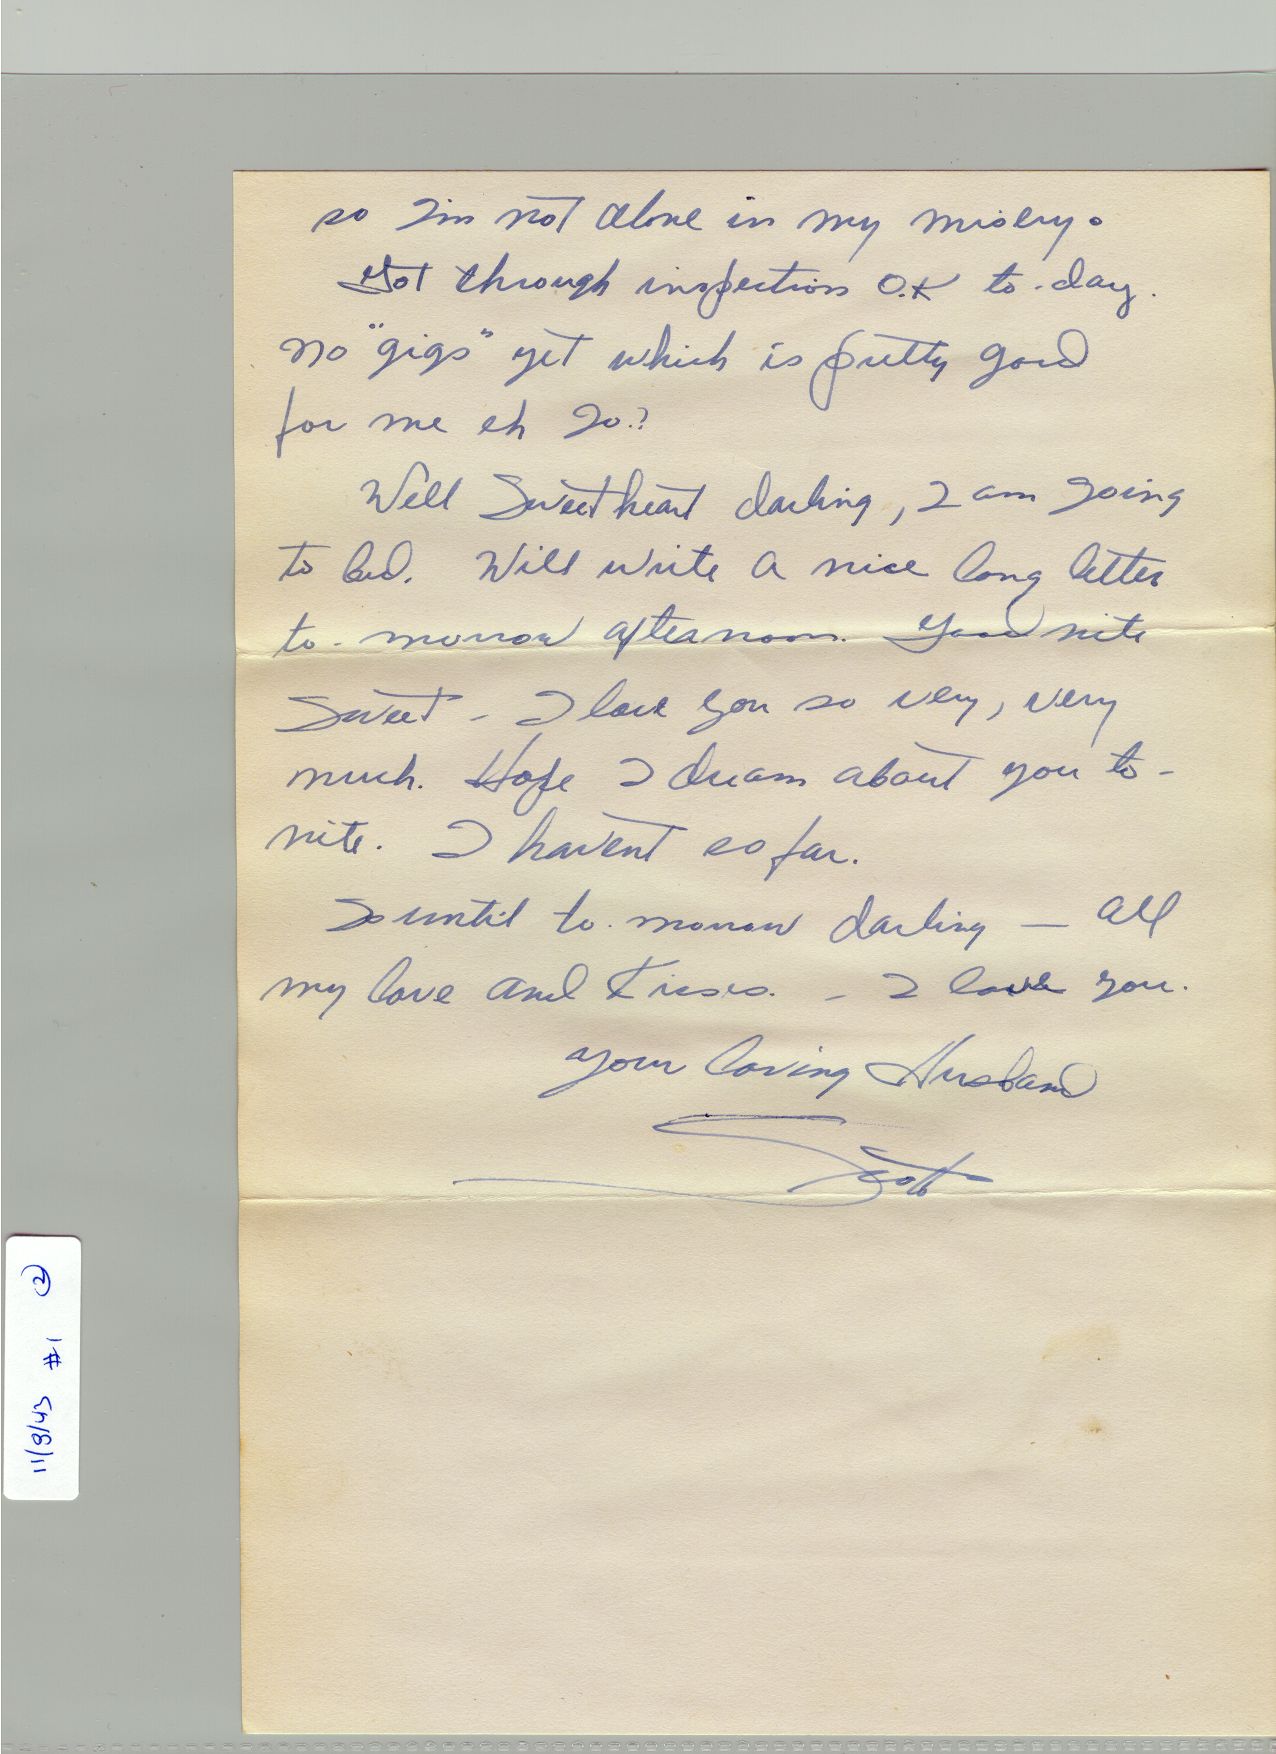 so I'm not alone in my misery.
Got through inspection O.K to-day.
no "gigs" yet which is pretty good
for me eh Jo.?
Well Sweetheart darling, I am going
to bed. Will write a nice long letter
to-morrow afternoon. Good nite
Sweet - I love you so very, very
much. Hope I dream about you to-
nite. I haven't so far.
So until to-morrow darling — all
my love and kisses. - I love you.
your loving Husband
Scott
11/8/43 #1 2